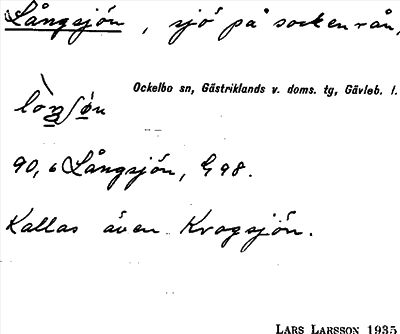 Långsjön, sjö på sockenrån,
Ockelbo sn, Gästriklands v. doms. tg, Gävleb. l.
90,6 Långsjön, G98.
Kallas även Krogsjön.
LARS LARSSON 1935